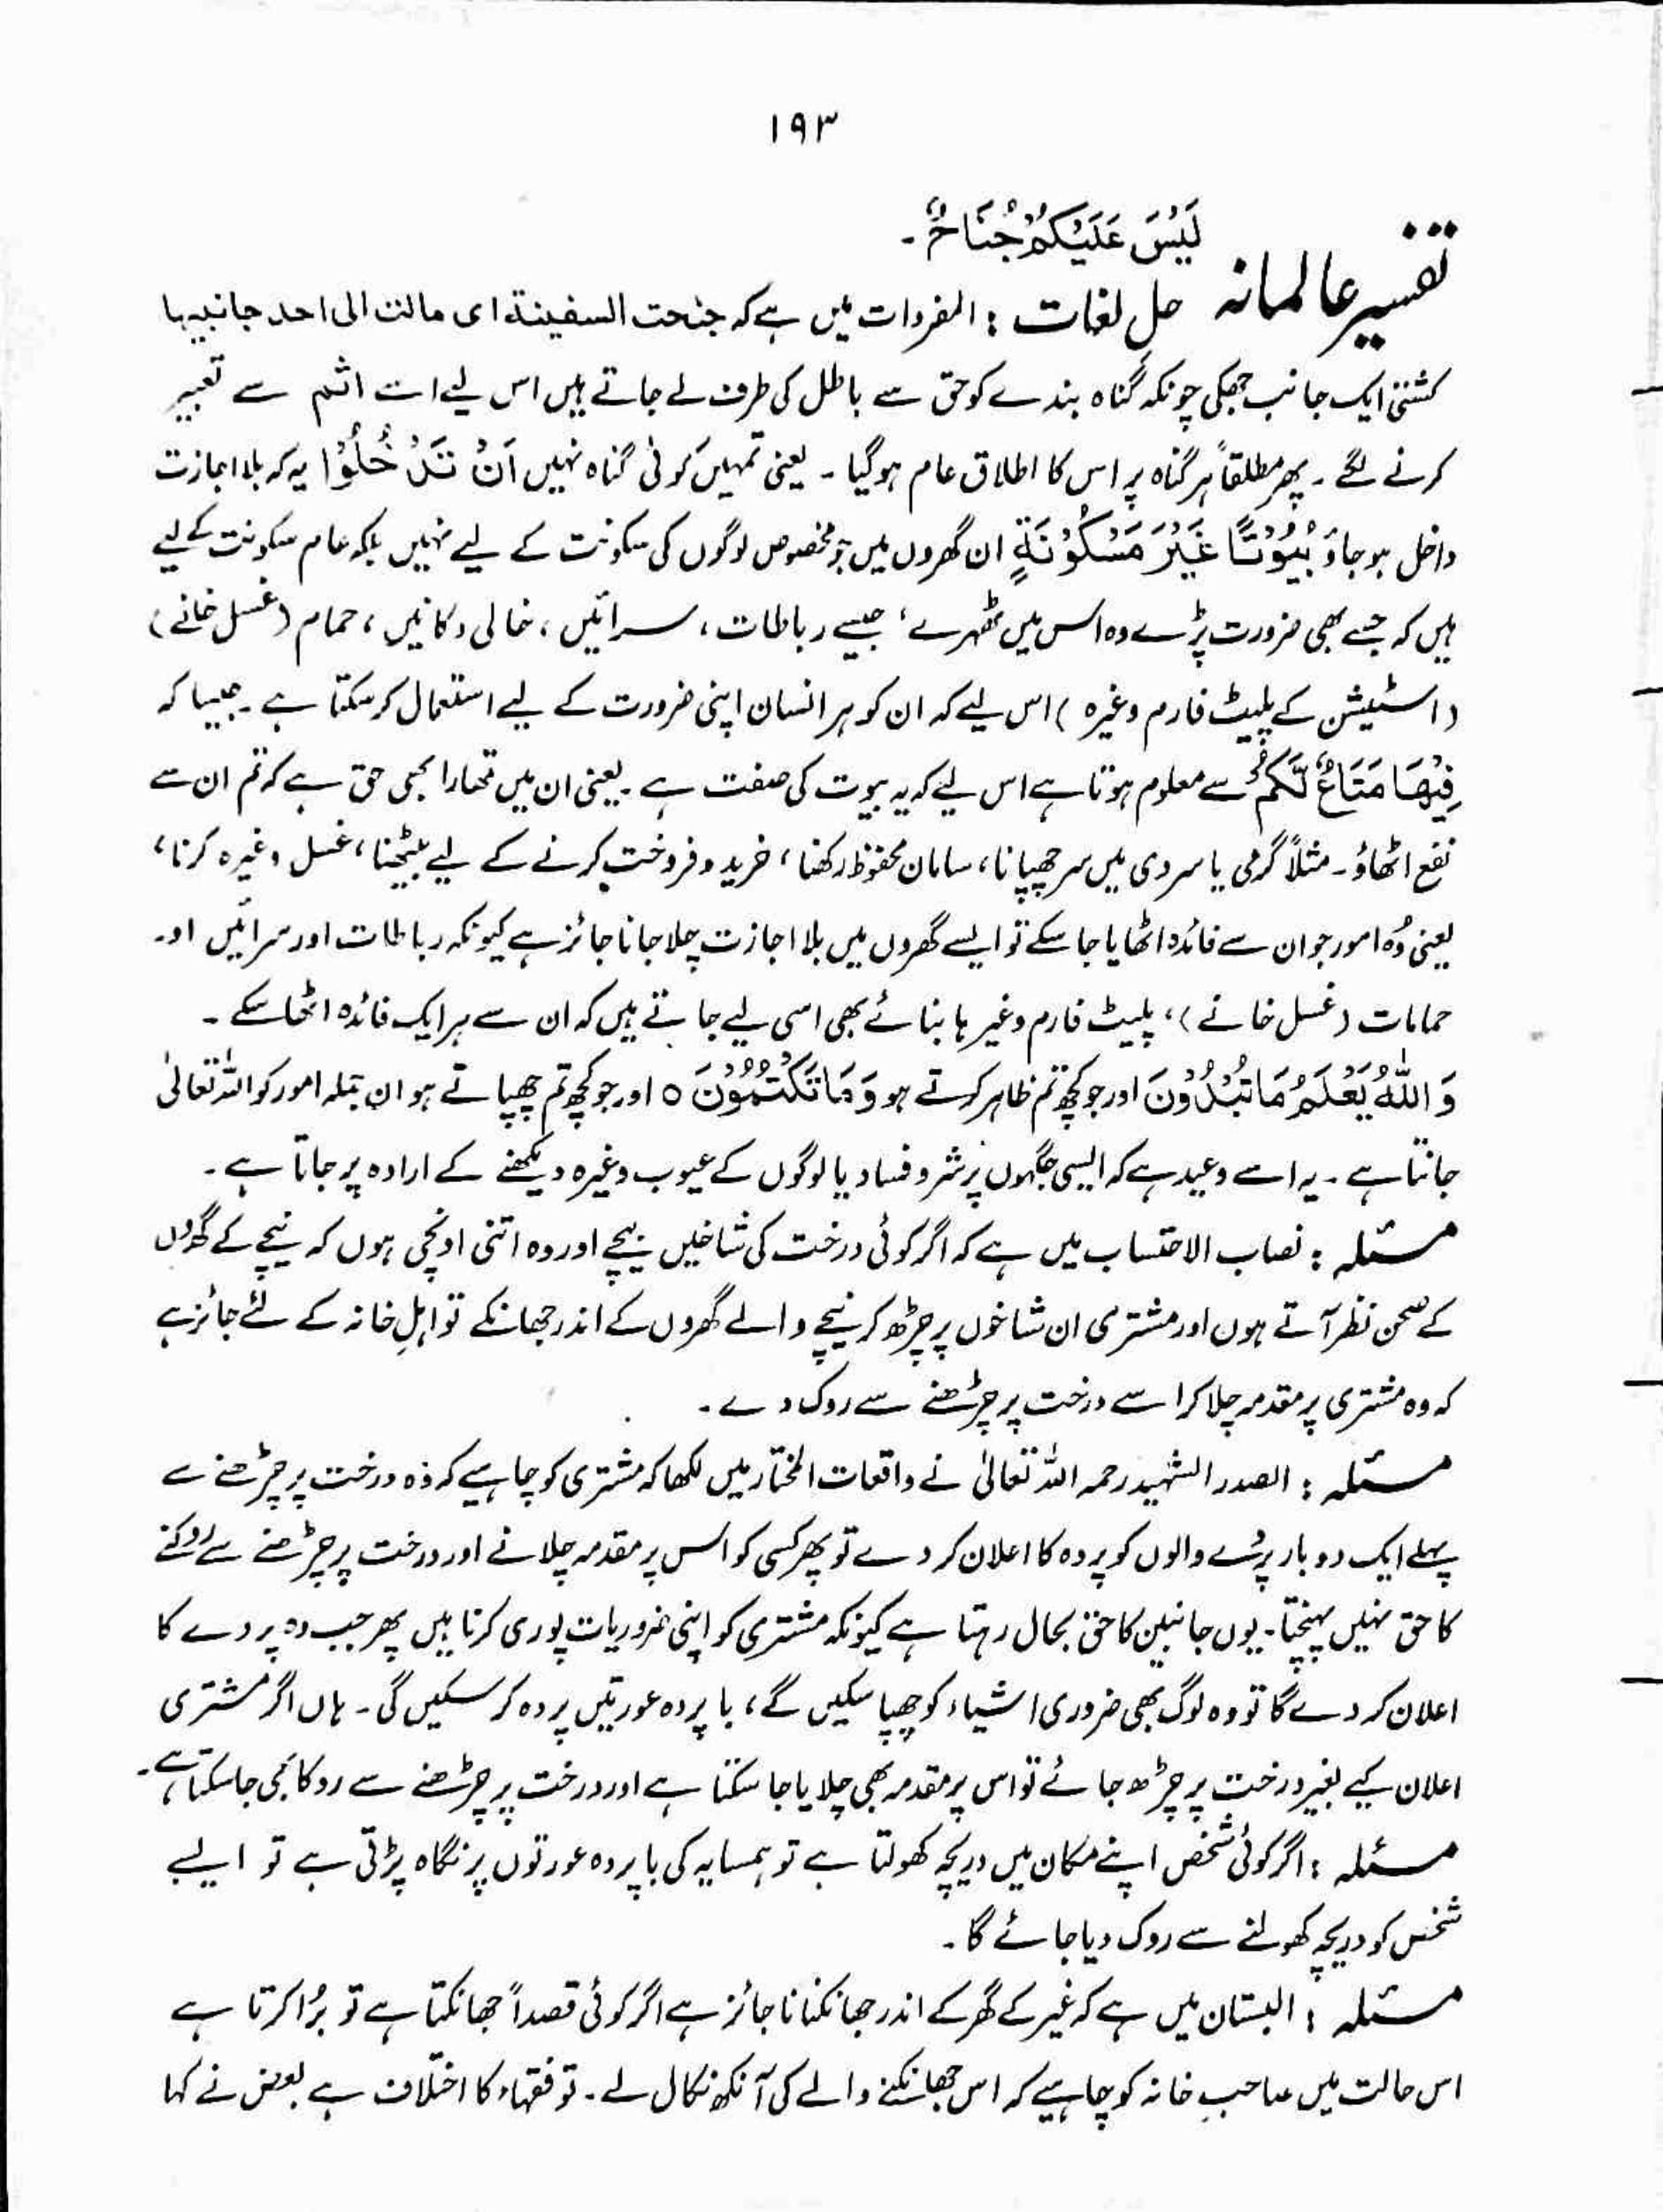 ۱۹۳
لَیْسَ عَلَیْکُمْ جُنَاحٌ۔
تفسیر عالمانہ
حل لغات : المفردات میں ہے کہ جنحت السفینۃ ای مالت الی احد جانبیہا
کشتی ایک جانب جھکی چونکہ گناہ بندے کو حق سے باطل کی طرف لے جاتے ہیں اس لیے اسے اثم سے تعبیر
کرنے لگے۔ پھر مطلقاً ہر گناہ پر اس کا اطلاق عام ہوگیا۔ یعنی تمہیں کوئی گناہ نہیں اَنْ تَدْخُلُوْا یہ کہ بلا اجازت
داخل ہو جاؤ بُیُوْتًا غَیْرَ مَسْکُوْنَۃٍ ان گھروں میں جو مخصوص لوگوں کی سکونت کے لیے نہیں بلکہ عام سکونت کے لیے
ہیں کہ جسے بھی ضرورت پڑے وہ اس میں ٹھہرے، جیسے رباطات، سرائیں، خالی دکانیں، حمام (غسل خانے)
(اسٹیشن کے پلیٹ فارم وغیرہ) اس لیے کہ ان کو ہر انسان اپنی ضرورت کے لیے استعمال کر سکتا ہے۔ جیسا کہ
فِیْھَا مَتَاعٌ لَّکُمْ سے معلوم ہوتا ہے اس لیے کہ یہ بیوت کی صفت ہے۔ یعنی ان میں تمھارا بھی حق ہے کہ تم ان سے
نفع اٹھاؤ۔ مثلاً گرمی یا سردی میں سر چھپانا، سامان محفوظ رکھنا، خرید و فروخت کرنے کے لیے بیٹھنا، غسل وغیرہ کرنا،
یعنی وُہ امور جو ان سے فائدہ اٹھایا جا سکے تو ایسے گھروں میں بلا اجازت چلا جانا جائز ہے کیونکہ رباطات اور سرائیں او۔
حمامات (غسل خانے)، پلیٹ فارم وغیرہا بنائے بھی اسی لیے جاتے ہیں کہ ان سے ہر ایک فائدہ اٹھا سکے۔
وَاللّٰہُ یَعْلَمُ مَا تُبْدُوْنَ اور جو کچھ تم ظاہر کرتے ہو وَمَا تَکْتُمُوْنَ ○ اور جو کچھ تم چھپاتے ہو ان جملہ امور کو اللہ تعالیٰ
جانتا ہے۔ یہ اسے وعید ہے کہ ایسی جگہوں پر شر و فساد یا لوگوں کے عیوب وغیرہ دیکھنے کے ارادہ پر جاتا ہے۔
مسئلہ : نصاب الاحتساب میں ہے کہ اگر کوئی درخت کی شاخیں بیچے اور وہ اتنی اونچی ہوں کہ نیچے کے گھروں
کے صحن نظر آتے ہوں اور مشتری ان شاخوں پر چڑھ کر نیچے والے گھروں کے اندر جھانکے تو اہلِ خانہ کے لئے جائز ہے
کہ وہ مشتری پر مقدمہ چلا کر اسے درخت پر چڑھنے سے روک دے۔
مسئلہ : الصدر الشہید رحمہ اللہ تعالیٰ نے واقعات المختار میں لکھا کہ مشتری کو چاہیے کہ وُہ درخت پر چڑھنے سے
پہلے ایک دو بار پڑے والوں کو پردہ کا اعلان کر دے تو پھر کسی کو اس پر مقدمہ چلانے اور درخت پر چڑھنے سے روکنے
کا حق نہیں پہنچتا۔ یوں جانبین کا حق بحال رہتا ہے کیونکہ مشتری کو اپنی ضروریات پوری کرنا ہیں پھر جب وہ پردے کا
اعلان کر دے گا تو وہ لوگ بھی ضروری اشیاء کو چھپا سکیں گے، با پردہ عورتیں پردہ کر سکیں گی۔ ہاں اگر مشتری
اعلان کیے بغیر درخت پر چڑھ جائے تو اس پر مقدمہ بھی چلایا جا سکتا ہے اور درخت پر چڑھنے سے روکا بھی جا سکتا ہے۔
مسئلہ : اگر کوئی شخص اپنے مکان میں دریچہ کھولتا ہے تو ہمسایہ کی با پردہ عورتوں پر نگاہ پڑتی ہے تو ایسے
شخص کو دریچہ کھولنے سے روک دیا جائے گا۔
مسئلہ : البستان میں ہے کہ غیر کے گھر کے اندر جھانکنا ناجائز ہے اگر کوئی قصداً جھانکتا ہے تو بُرا کرتا ہے
اس حالت میں صاحبِ خانہ کو چاہیے کہ اس جھانکنے والے کی آنکھ نکال لے۔ تو فقہاء کا اختلاف ہے بعض نے کہا